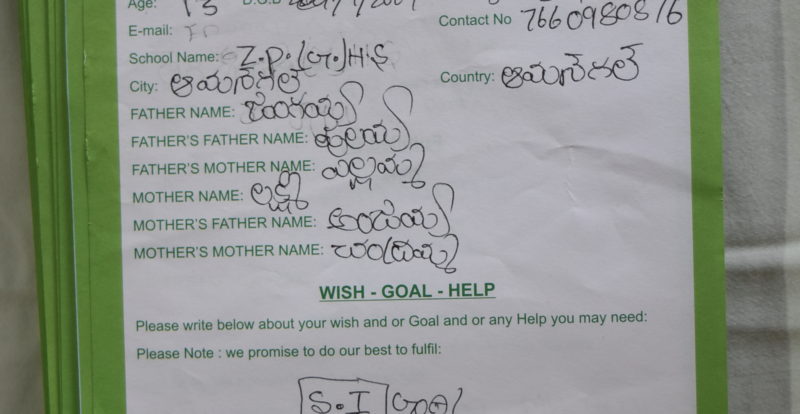 Age: 13 D.O.B
Contact No 7660980816
E-mail:
School Name: Z.P.(G.)H.S
City: ఆమనేగల్
Country: ఆమనేగల్
FATHER NAME: జంగయ్య
FATHER'S FATHER NAME: పుల్లయ్య
FATHER'S MOTHER NAME: ఎల్లమ్మ
MOTHER NAME: లక్ష్మి
MOTHER'S FATHER NAME: అంజయ్య
MOTHER'S MOTHER NAME: చంద్రమ్మ
WISH - GOAL - HELP
Please write below about your wish and or Goal and or any Help you may need:
Please Note : we promise to do our best to fulfil:
S.I